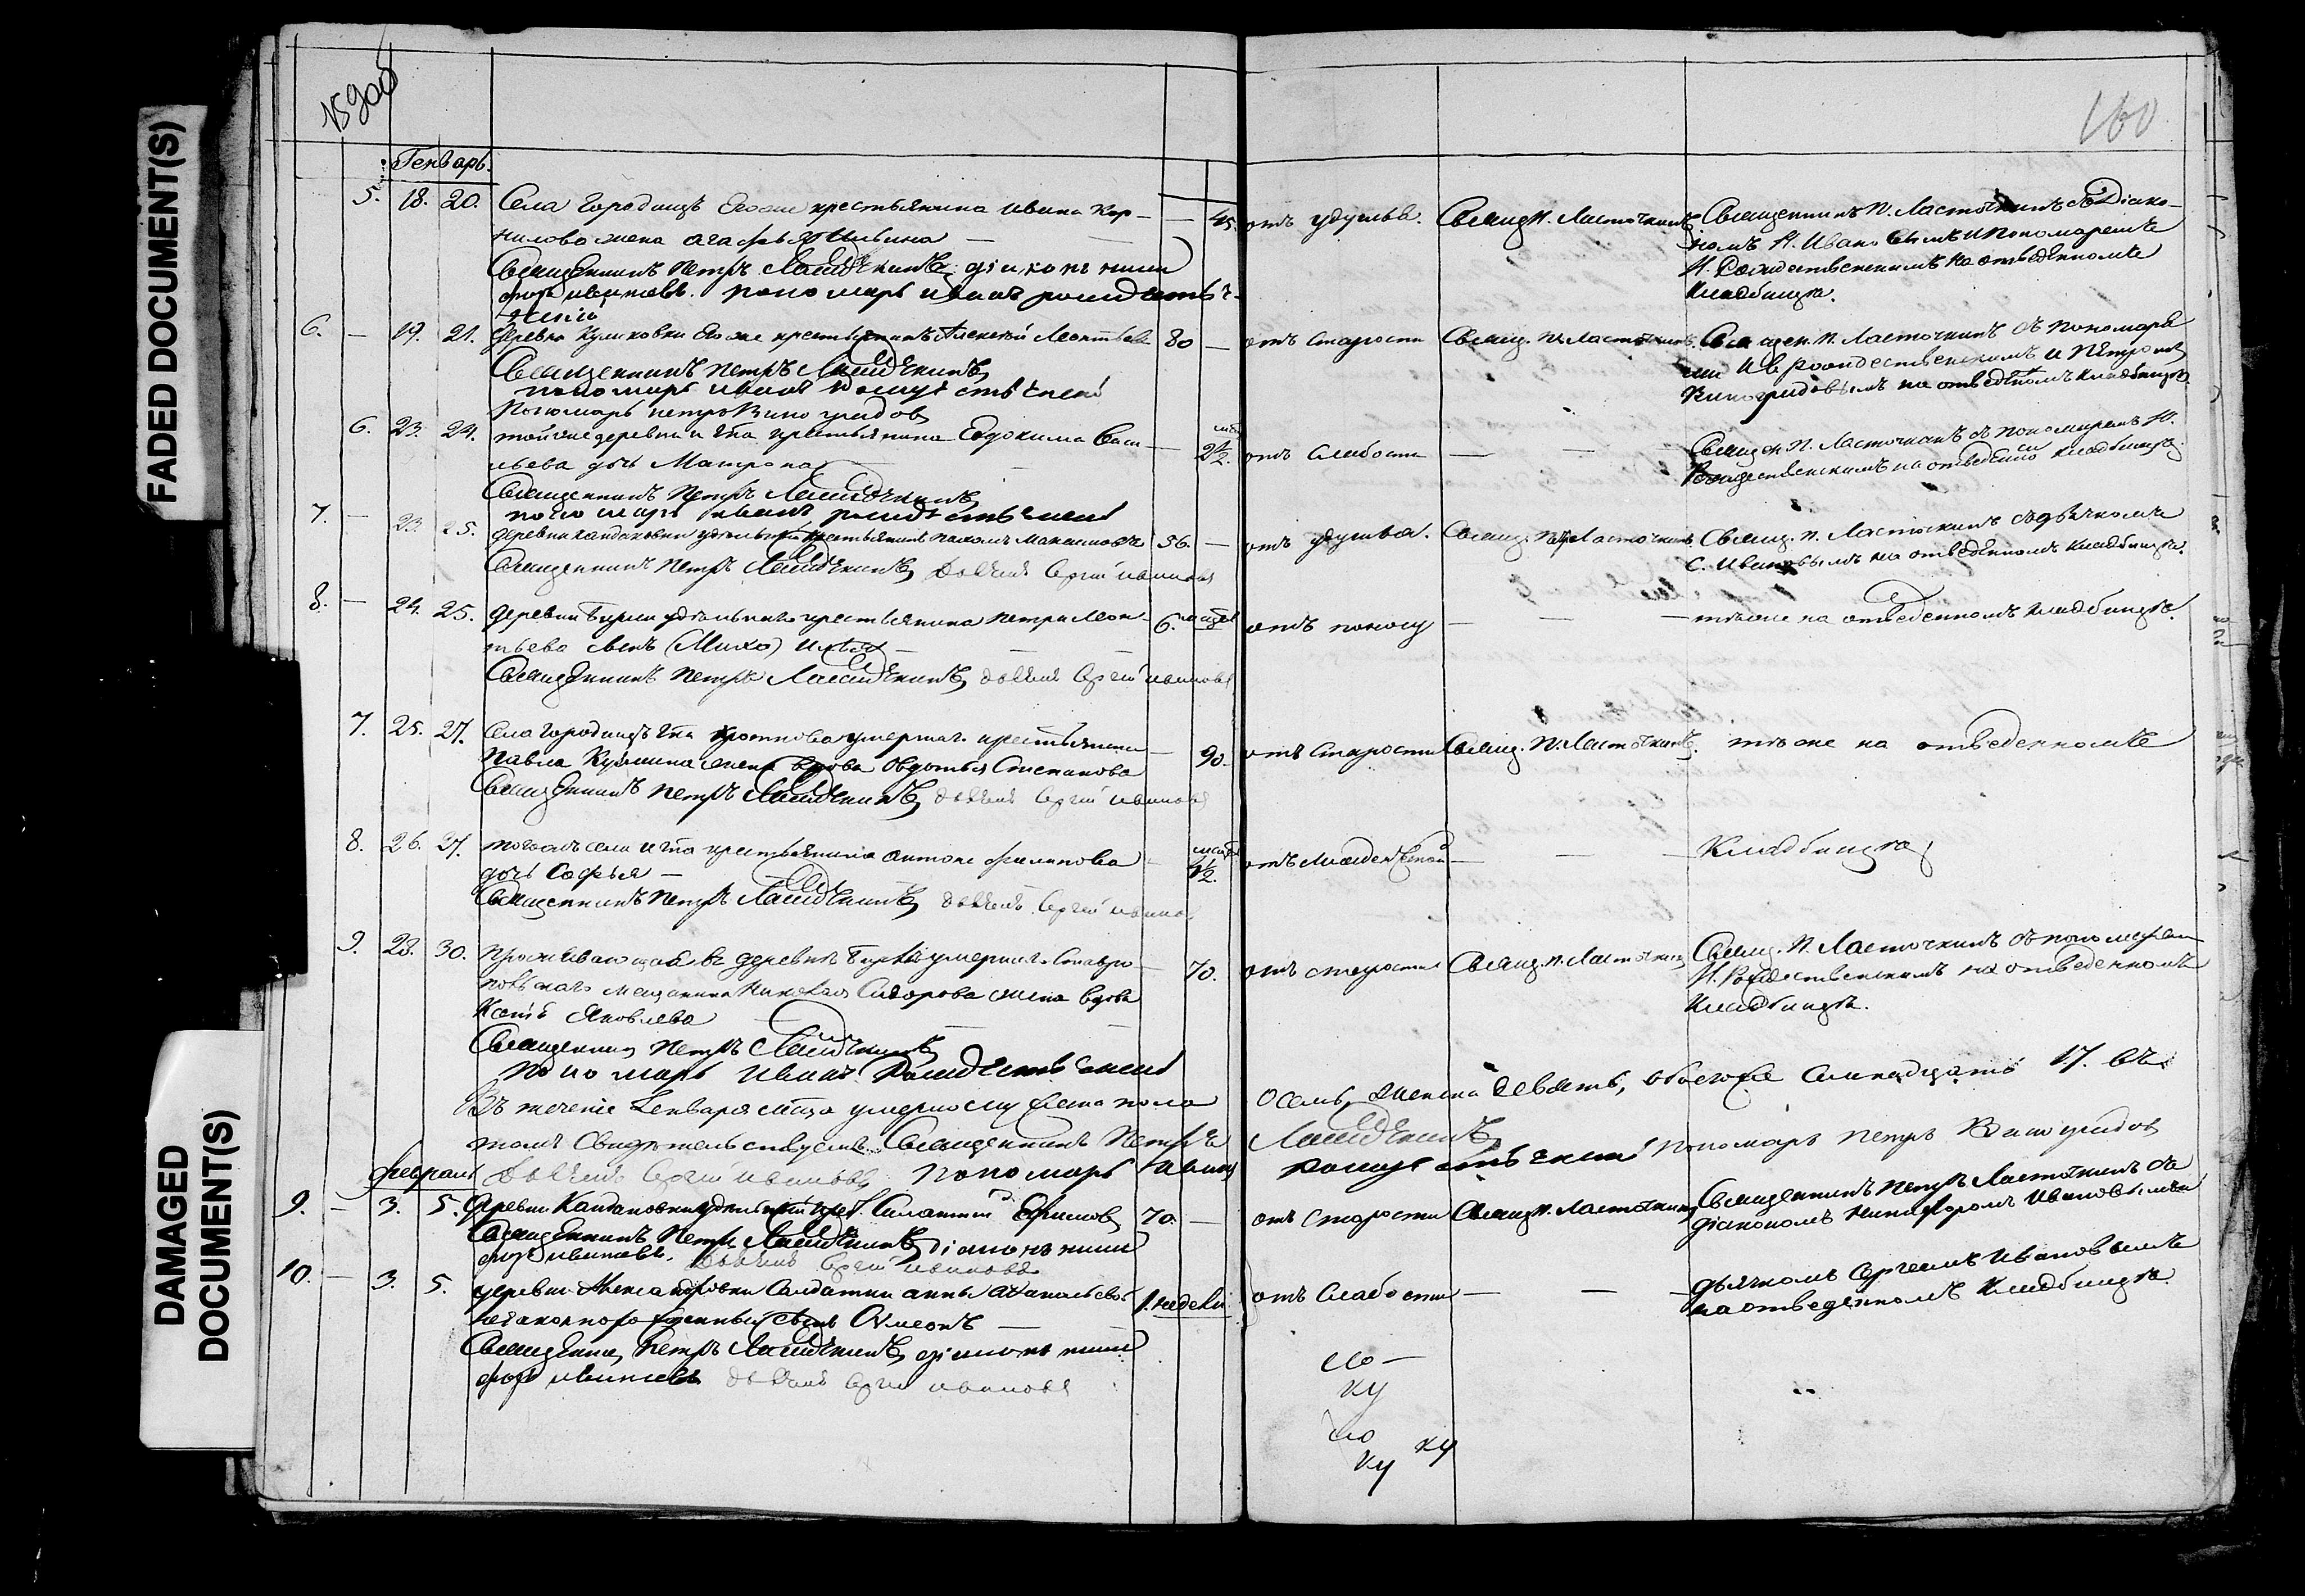 FADED DOCUMENT(S)
DAMAGED
DOCUMENT(S)
159об
160
Генварь.
5. 18. 20. Села Городищъ крестьянина Ивана Кор-
нилова жена Агафья Ильина
— 45. отъ удушья. Свящ. П. Ласточкинъ Священникъ П. Ласточкинъ съ Діако-
номъ Н. Ивановымъ и пономаремъ
И. Рождественскимъ на отведенномъ
Кладбищѣ.
Священникъ Петръ Ласточкинъ, діаконъ Ники-
форъ Ивановъ. пономарь Иванъ Рождестве-
нскій
6. — 19. 21. деревни Куликовки крестьянинъ Алексей Леонтьевъ 80 — отъ старости Свящ. П. Ласточкинъ. Священ. П. Ласточкинъ съ пономаря
ми Ив Рождественскимъ и Петромъ
Виноградовымъ на отведенномъ кладбищѣ.
Священникъ Петръ Ласточкинъ
пономарь Иванъ Рождественскій
Пономарь Петръ Виноградов
6. 23. 24. тойже деревни крестьянина Евдокима Васи-
льева дочь Матрона
— 2½. отъ слабости — — Священ П. Ласточкинъ съ пономаремъ И.
Рождественскимъ на отведенно кладбищѣ.
Священникъ Петръ Ласточкинъ
пономарь Иванъ Рождественскій
7. — 23. 25. деревни удельный крестьянинъ Пахомъ Максимовъ 56. — отъ удушья. Свящ. П. Ласточкинъ. Свящ. П. Ласточкинъ съ дьячкомъ
С. Ивановымъ на отведенномъ Кладбищѣ.
Священникъ Петръ Ласточкинъ, Дьячекъ Сергей Ивановъ
8. — 24. 25. деревни удельнаго крестьянина Петра Леон-
тьева сынъ
6. отъ поносу — — тѣже на отведенномъ кладбищѣ.
Священникъ Петръ Ласточкинъ, дьячекъ Сергей Ивановъ
7. 25. 27. Села Городищъ умершаго крестьянина
Павла Кузмина жена вдова Овдотья Степанова
— 90. отъ старости Свящ. П. Ласточкинъ. тѣже на отведенномъ
Священникъ Петръ Ласточкинъ, дьячекъ Сергей Ивановъ
8. 26. 27. тогожъ села крестьянина Антона Филипова
дочь Софья —
½. отъ младенческой — — Кладбищѣ
Священникъ Петръ Ласточкинъ, дьячекъ Сергей Иванов
9. 28. 30. Проживающая въ деревнѣ умершаго Ставро-
польскаго мещанина Николая Сидорова жена вдова
Яковлева
70. отъ старости Свящ. П. Ласточкинъ Свящ. П. Ласточкинъ съ пономаремъ
И. Рождественскимъ на отведенномъ
Кладбищѣ.
Священникъ Петръ Ласточкинъ
пономарь Иванъ Рождественскій
Въ теченіе Генваря мѣсяца умерло мужеска пола осемь, женска девять, обоего семнадцать 17. въ
томъ свидѣтельствуемъ. Священникъ Петръ Ласточкинъ
Дьячекъ Сергей Ивановъ Пономарь Иванъ Рождественский Пономарь Петръ Виноградов
февраль
9. — 3. 5. Деревни удельный крест. Ефимовъ 70. — отъ старости Свящ. П. Ласточкинъ Священникъ Петръ Ласточкинъ съ
діакономъ Никифоромъ Ивановымъ
Священникъ Петръ Ласточкинъ, діаконъ Ники
форъ Ивановъ. Дьячекъ Сергей Ивановъ
10. — 3. 5. деревни Александровки Солдатки Анны
незаконнорожденный сынъ Симеонъ —
1. недели отъ слабости — — дьячкомъ Сергеемъ Ивановымъ
на отведенномъ Кладбищѣ.
Священникъ Петръ Ласточкинъ, діаконъ Ники
форъ Ивановъ дьячекъ Сергей Ивановъ
ку
ку
ку